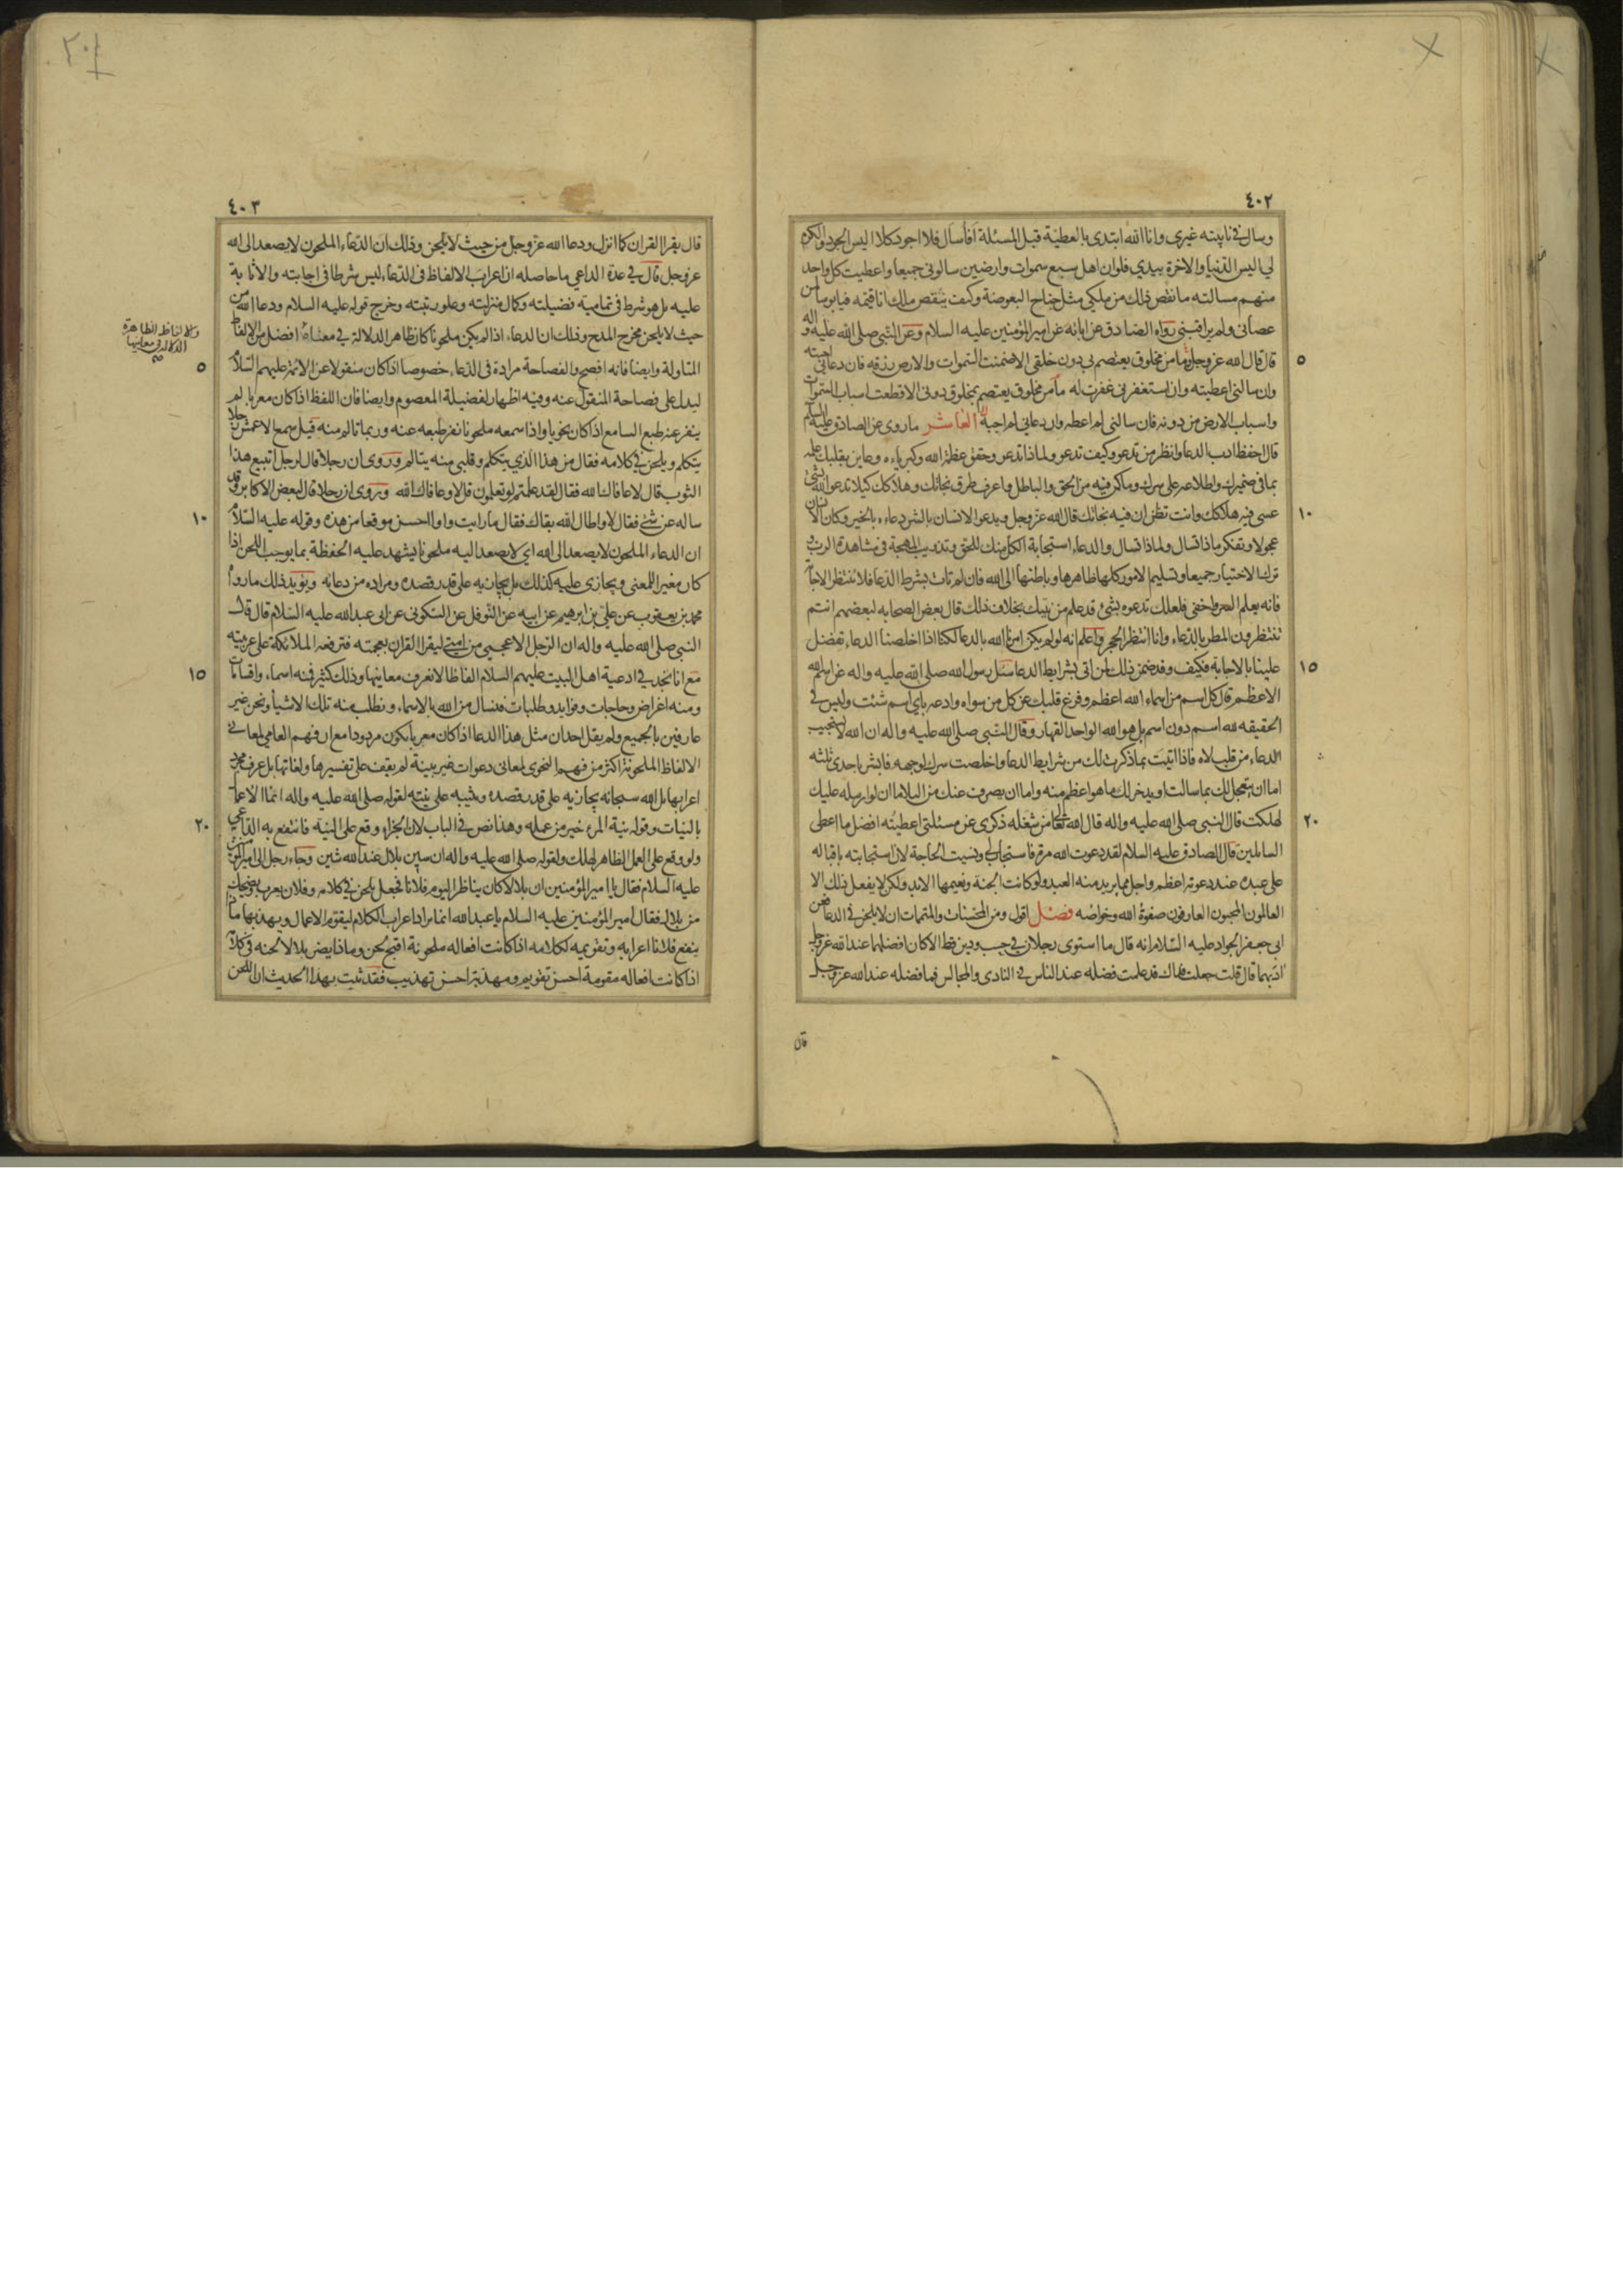 ٤٠٢
وسال في نايبته غيري وانا الله ابتدى بالعطية قبل المسئلة افأسأل فلا اجود كلا اليس الجود والكرم
لي اليس الدنيا والاخرة بيدي فلو ان اهل سبع سموات وارضين سالوني جميعا واعطيت كل واحد
منهم مسالته ما نقص ذلك من ملكي مثل جناح البعوضة وكيف ينقص ملك انا قيمه فيا بوسا لمن
عصاني ولم يراقبني رواه الصادق عن ابائه عن امير المؤمنين عليه السلام وعن النبي صلى الله عليه واله
٥
قال قال الله عز وجل ما من مخلوق يعتصم بي دون خلقي الا ضمنت السموات والارض رزقه فان دعاني اجبته
وان سالني اعطيته وان استغفرني غفرت له ما من مخلوق يعتصم بمخلوق دوني الا قطعت اسباب السموات
واسباب الارض من دونه فان سالني لم اعطه وان دعاني لم اجبه العاشر ما روى عن الصادق عليه السلم
قال احفظ ادب الدعا وانظر من تدعو وكيف تدعو ولماذا تدعو وحقق عظمة الله وكبرياءه وعاين بقلبك علمه
بما في ضميرك واطلاعه على سرك وما كن فيه من الحق والباطل واعرف طرق نجاتك وهلاكك كيلا تدعو الله بشئ
١٠
عسى فيه هلاكك وانت تظن ان فيه نجاتك قال الله عز وجل ويدعو الانسان بالشر دعاءه بالخير وكان الانسان
عجولا وتفكر ماذا تسال ولماذا تسال والدعاء استجابة الكل منك للحق وتذويب المهجة في مشاهدة الرب و
ترك الاختيار جميعا وتسليم الامور كلها ظاهرها وباطنها الى الله فان لم تات بشرط الدعا فلا تنتظر الاجابة
فانه يعلم السر واخفى فلعلك تدعوه بشئ قد علم من نيتك بخلاف ذلك قال بعض الصحابه لبعضهم انتم
تنتظرون المطر بالدعاء وانا انتظر الحجر واعلم انه لو لم يكن امرنا الله بالدعا لكنا اذا اخلصنا الدعاء تفضل
١٥
علينا بالاجابة فكيف وقد ضمن ذلك لمن اتى بشرايط الدعا سئل رسول الله صلى الله عليه واله عن اسم الله
الاعظم قال كل اسم من اسماء الله اعظم وفرغ قلبك عن كل من سواه وادعه باي اسم شئت وليس في
الحقيقه لله اسم دون اسم بل هو الله الواحد القهار وقال النبي صلى الله عليه واله ان الله لا يستجيب
الدعاء من قلب لاه فاذا اتيت بما ذكرت لك من شرايط الدعا واخلصت سرك لوجهه فابشر باحدى ثلثه
اما ان يعجل لك بما سالت او يدخر لك ما هو اعظم منه واما ان يصرف عنك من البلا ما ان لو ارسله عليك
٢٠
لهلكت قال النبي صلى الله عليه واله قال الله تعالى من شغله ذكري عن مسئلتي اعطيته افضل ما اعطى
السايلين قال الصادق عليه السلام لقد دعوت الله مرة فاستجاب لي ونسيت الحاجة لان استجابته باقباله
على عبده عند دعوته اعظم واجل مما يريد منه العبد ولو كانت الجنة ونعيمها الابد ولكن لا يفعل ذلك الا
العالمون المحبون العارفون صفوة الله وخواصه فصل اقول ومن المحسنات والمتممات ان لا يلحن في الدعا فعن
ابي جعفر الجواد عليه السلام انه قال ما استوى رجلان في حسب ودين قط الا كان افضلهما عند الله عز وجل
ادبهما قال قلت جعلت فداك قد علمت فضله عند الناس في النادي والمجالس فما فضله عند الله عز وجل
قال
٤٠٣
قال يقرا القران كما انزل ودعا الله عز وجل من حيث لا يلحن وذلك ان الدعاء الملحون لا يصعد الى الله
عز وجل قال في عدة الداعي ما حاصله ان اعراب الالفاظ في الدعاء ليس شرطا في اجابته والاثابة
عليه بل هو شرط في تمامية فضيلته وكمال منزلته وعلو رتبته وخرج قوله عليه السلام ودعا الله من
حيث لا يلحن مخرج المدح وذلك ان الدعاء اذا لم يكن ملحونا كان ظاهر الدلالة في معناه افضل من الالفاظ
والالفاظ الظاهرة
الدلالة في معانيها
صح
٥
المتاولة وايضا فانه افصح والفصاحة مرادة في الدعاء خصوصا اذا كان منقولا عن الائمة عليهم السلام
ليدل على فصاحة المنقول عنه وفيه اظهار لفضيلة المعصوم وايضا فان اللفظ اذا كان معربا لم
ينفر عنه طبع السامع اذا كان نحويا واذا سمعه ملحونا نفر طبعه عنه وربما تالم منه قيل سمع الاعمش رجلا
يتكلم ويلحن في كلامه فقال من هذا الذي يتكلم وقلبي منه يتالم وروى ان رجلا قال لرجل اتبيع هذا
الثوب قال لا عافاك الله فقال لقد علمتم لو تعلمون قل لا وعافاك الله وروى ان رجلا قال لبعض الاكابر وقد
١٠
ساله عن شئ فقال لا واطال الله بقاك فقال ما رايت واوا احسن موقعا من هذه وقوله عليه السلام
ان الدعاء الملحون لا يصعد الى الله اي لا يصعد اليه ملحونا يشهد عليه الحفظة بما يوجب اللحن اذا
كان مغيرا للمعنى ويجازى عليه كذلك بل يجازيه على قدر قصده ومراده من دعائه ويؤيد ذلك ما رواه
محمد بن يعقوب عن علي بن ابرهيم عن ابيه عن النوفلي عن السكوني عن ابي عبد الله عليه السلام قال قال
النبي صلى الله عليه واله ان الرجل الاعجمي من امتي ليقرا القران بعجمته فترفعه الملائكة على عربيته
١٥
مع انا نجد في ادعية اهل البيت عليهم السلام الفاظا لا نعرف معانيها وذلك كثير فمنه اسماء واقسامات
ومنه اغراض وحاجات وفوايد وطلبات فنسال من الله بالاسماء ونطلب منه تلك الاشيا ونحن غير
عارفين بالجميع ولم يقل احد ان مثل هذا الدعا اذا كان معربا يكون مردودا مع ان فهم العامي لمعاني
الالفاظ الملحونة اكثر من فهم النحوي لمعاني دعوات غير بينة لم يقف على تفسيرها ولغاتها بل عرف مجرد
اعرابها بل الله سبحانه يجازيه على قدر قصده ويثيبه على نيته لقوله صلى الله عليه واله انما الاعمال
٢٠
بالنيات وقوله نية المرء خير من عمله وهذا نص في الباب لان الجزاء وقع على النية فانتفع به الداعي
ولو وقع على العمل الظاهر لهلك ولقوله صلى الله عليه واله ان سين بلال عند الله شين وجاء رجل الى امير المؤمنين
عليه السلام فقال يا امير المؤمنين ان بلالا كان يناظر اليوم فلانا فجعل يلحن في كلامه وفلان يعرب ويضحك
من بلال فقال امير المؤمنين عليه السلام يا عبد الله انما يراد اعراب الكلام ليقوم الاعمال ويهذبها ما
ينفع فلانا اعرابه وتقويمه لكلامه اذا كانت افعاله ملحونة اقبح لحن وماذا يضر بلالا لحنه في كلامه
اذا كانت افعاله مقومة احسن تقويم ومهذبة احسن تهذيب فقد ثبت بهذا الحديث ان اللحن